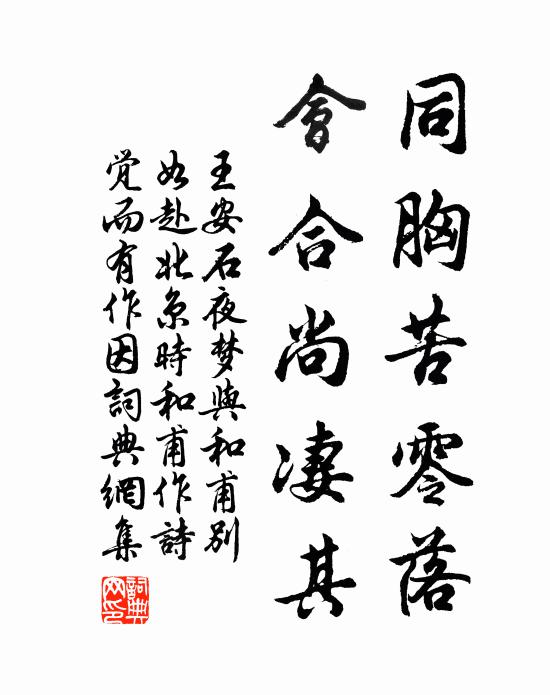 同胸苦零落
會合尚凄其
王安石夜梦與和甫别
如赴北京時和甫作詩
觉而有作因詞典網集
詞典
网印